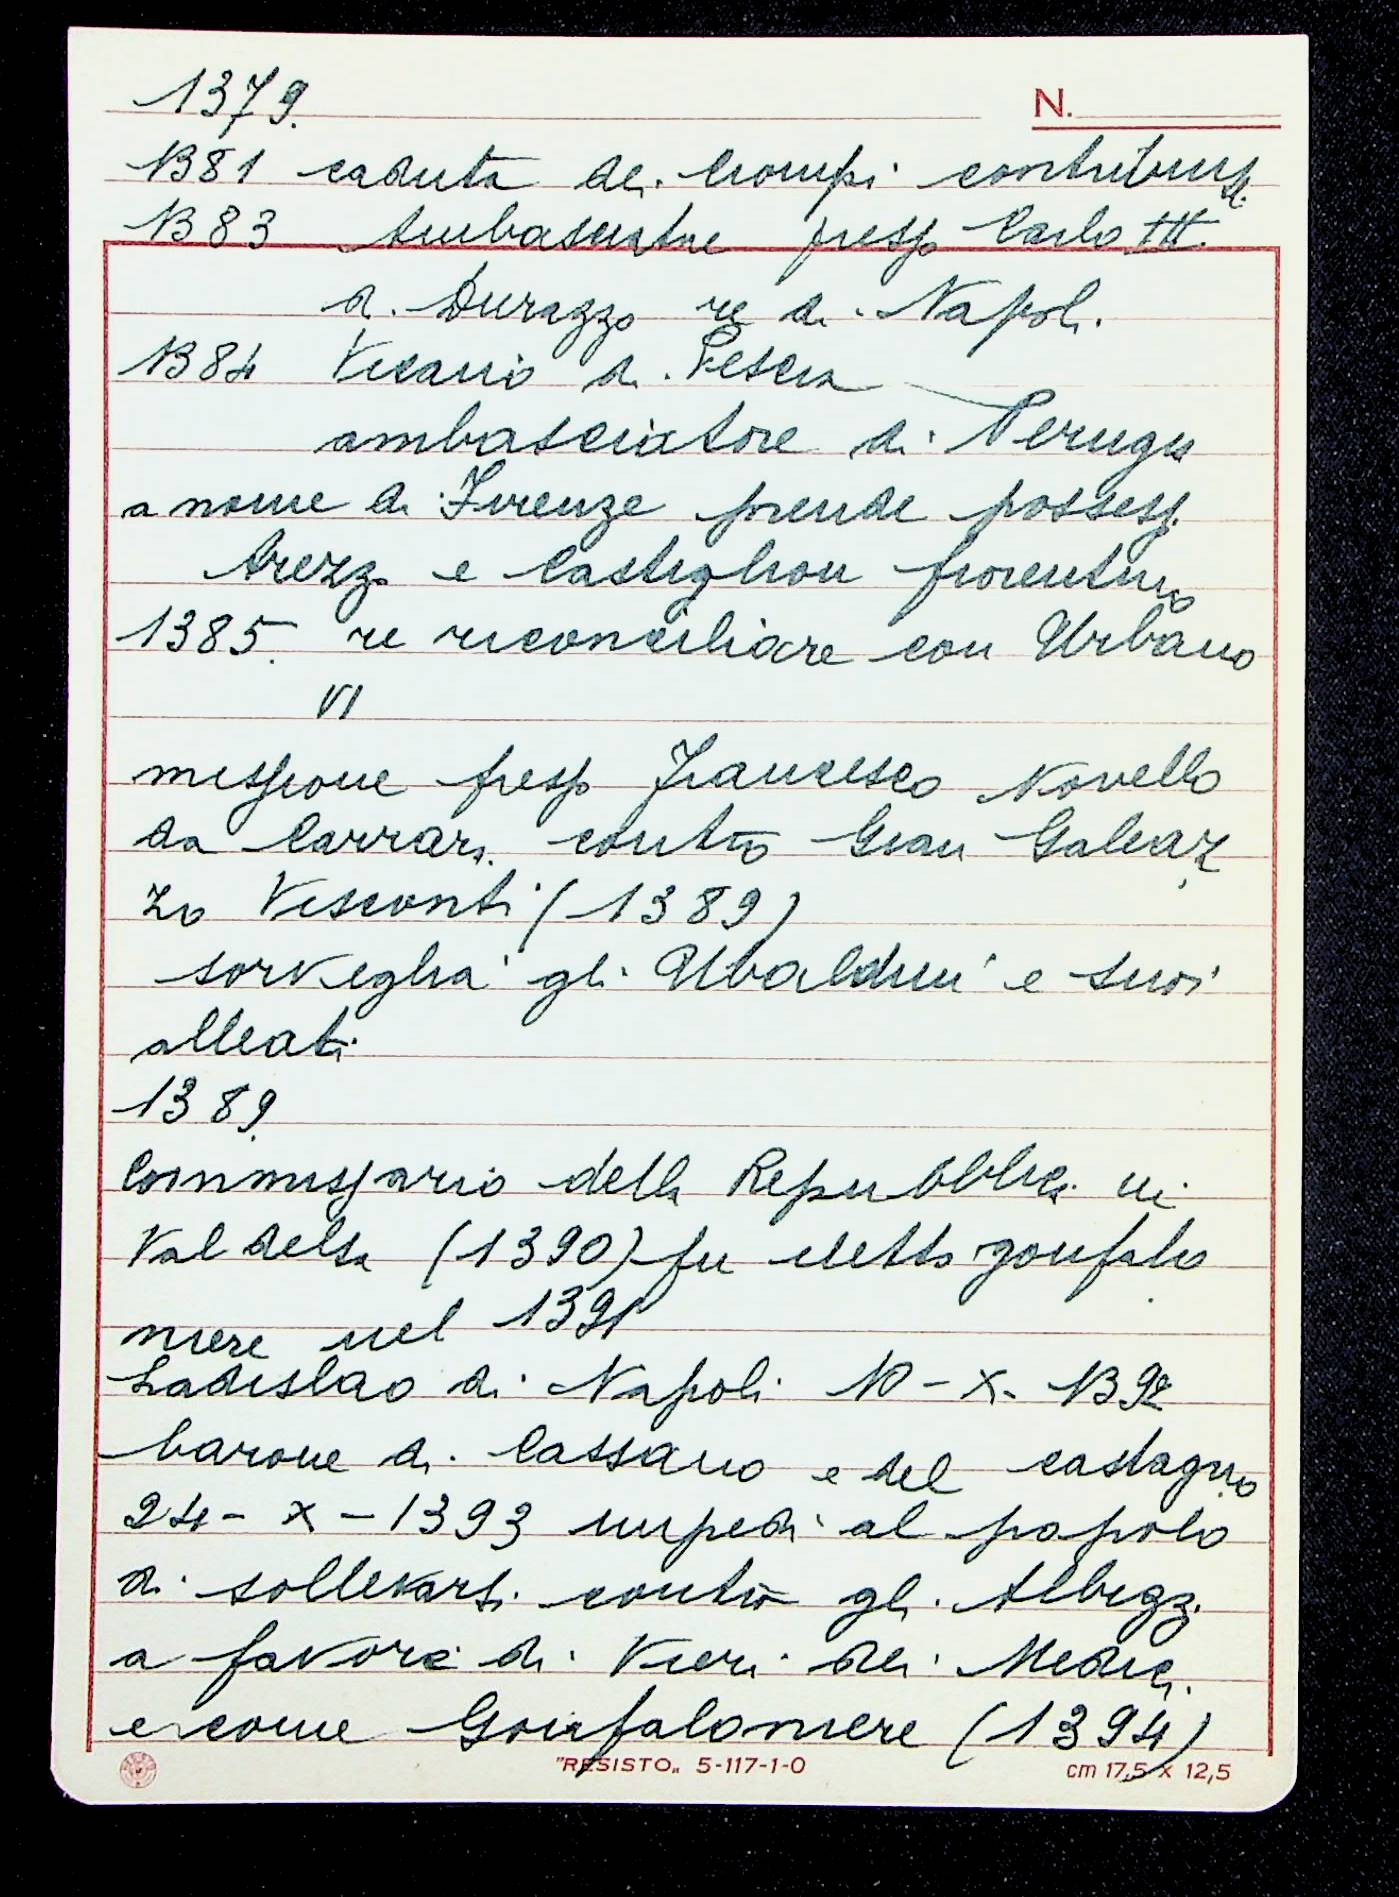 1379.
N.
1381 caduta dei Ciompi contribuisce
1383 Ambasciatore presso Carlo III
di Durazzo re di Napoli.
1384 Vicario di Pescia
ambasciatore di Perugia
a nome di Firenze prende possesso
Arezzo e Castiglion fiorentino
1385. re riconciliare con Urbano
VI
missione presso Francesco Novello
da Carrara contro Gian Galeaz
zo Visconti (1389)
sorveglia gli Ubaldini e suoi
alleati
1389.
Commissario della Repubblica in
Val delsa (1390) fu eletto gonfalo
niere nel 1391
Ladislao di Napoli 10-X-1392
barone di Cassano e del castagno
24-X-1393 impedì al popolo
di sollevarsi contro gli Albizzi
a favore di Vieri dei Medici
e come Gonfaloniere (1394)
"RESISTO„ 5-117-1-0
cm 17,5 x 12,5